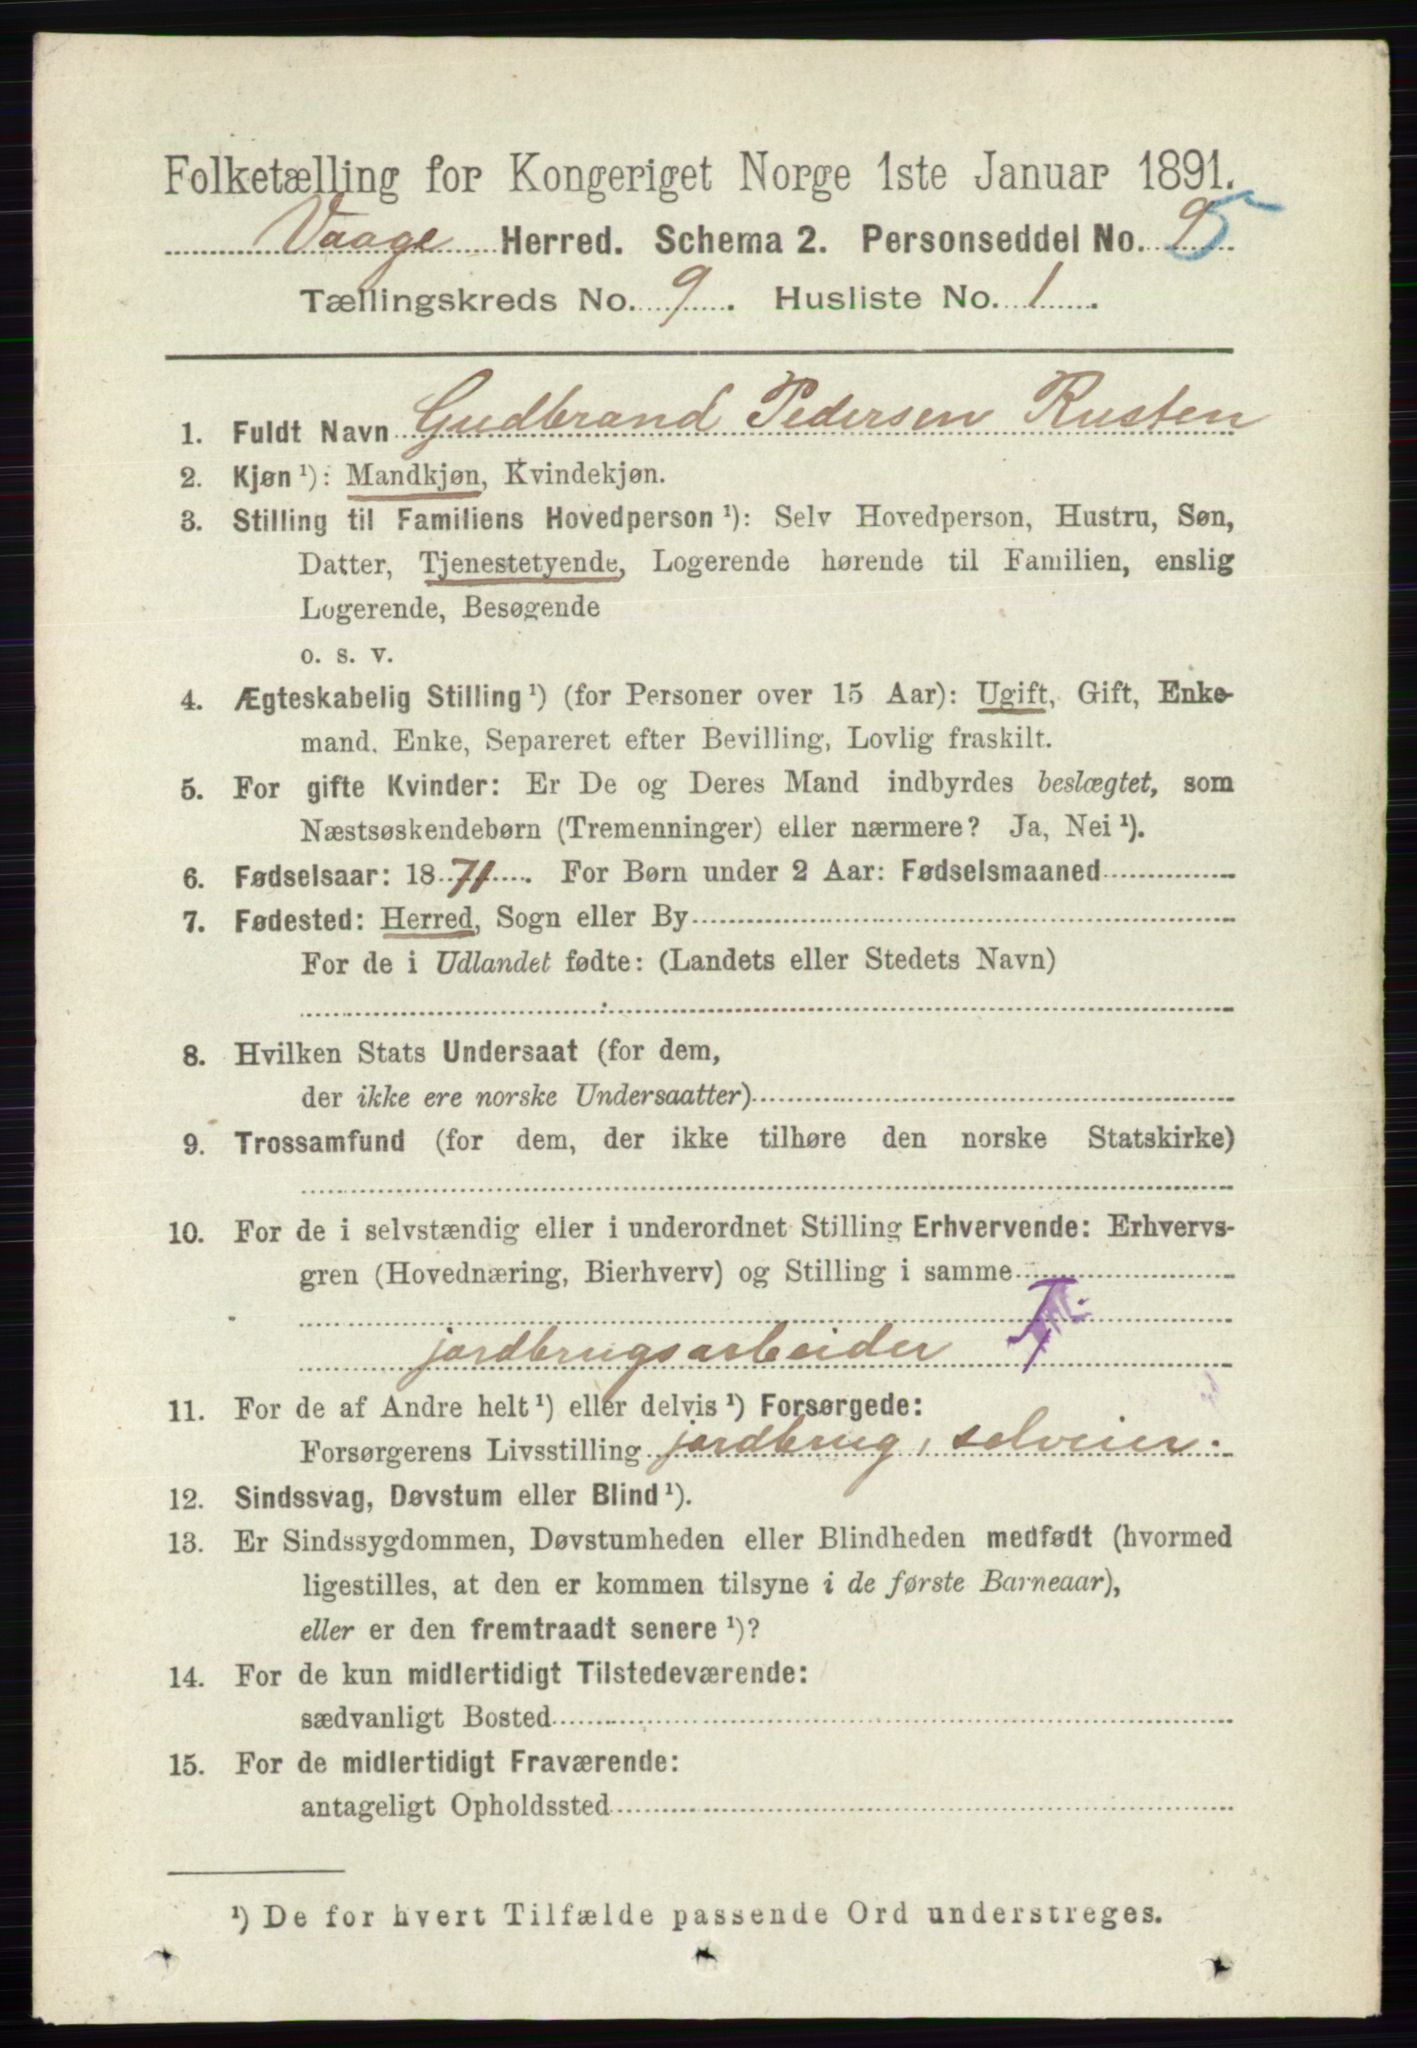 Folketælling for Kongeriget Norge 1ste Januar 1891.
Vaage Herred. Schema 2. Personseddel No. 9 5
Tællingskreds No. 9. Husliste No. 1.
1. Fuldt Navn Gudbrand Pedersen Rusten
2. Kjøn ¹): Mandkjøn, Kvindekjøn.
3. Stilling til Familiens Hovedperson ¹): Selv Hovedperson, Hustru, Søn,
Datter, Tjenestetyende, Logerende hørende til Familien, enslig
Logerende, Besøgende
o. s. v.
4. Ægteskabelig Stilling ¹) (for Personer over 15 Aar): Ugift, Gift, Enke-
mand, Enke, Separeret efter Bevilling, Lovlig fraskilt.
5. For gifte Kvinder: Er De og Deres Mand indbyrdes beslægtet, som
Næstsøskendebørn (Tremenninger) eller nærmere? Ja, Nei ¹).
6. Fødselsaar: 1871. For Børn under 2 Aar: Fødselsmaaned
7. Fødested: Herred, Sogn eller By
For de i Udlandet fødte: (Landets eller Stedets Navn)
8. Hvilken Stats Undersaat (for dem,
der ikke ere norske Undersaatter)
9. Trossamfund (for dem, der ikke tilhøre den norske Statskirke)
10. For de i selvstændig eller i underordnet Stilling Erhvervende: Erhvervs-
gren (Hovednæring, Bierhverv) og Stilling i samme
jordbrugsarbeider
11. For de af Andre helt ¹) eller delvis ¹) Forsørgede:
Forsørgerens Livsstilling jordbrug, selveier.
12. Sindssvag, Døvstum eller Blind ¹).
13. Er Sindssygdommen, Døvstumheden eller Blindheden medfødt (hvormed
ligestilles, at den er kommen tilsyne i de første Barneaar),
eller er den fremtraadt senere ¹)?
14. For de kun midlertidigt Tilstedeværende:
sædvanligt Bosted
15. For de midlertidigt Fraværende:
antageligt Opholdssted
¹) De for hvert Tilfælde passende Ord understreges.